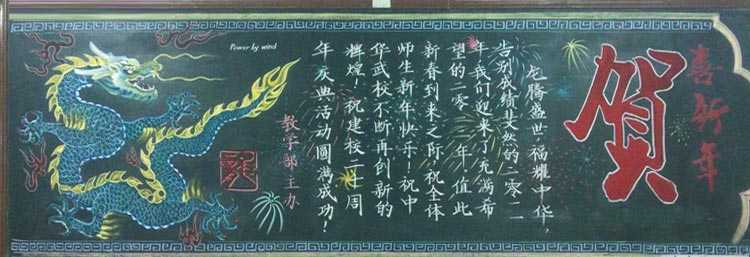 賀
喜新年
龙腾盛世,福耀中华,
告别成绩斐然的二零一一
年我们迎来了充满希
望的二零一二年,值此
新春到来之际祝全体
师生新年快乐!祝中
华武校不断再创新的
辉煌!祝建校二十周
年庆典活动圆满成功!
教学部主办
Power by wind